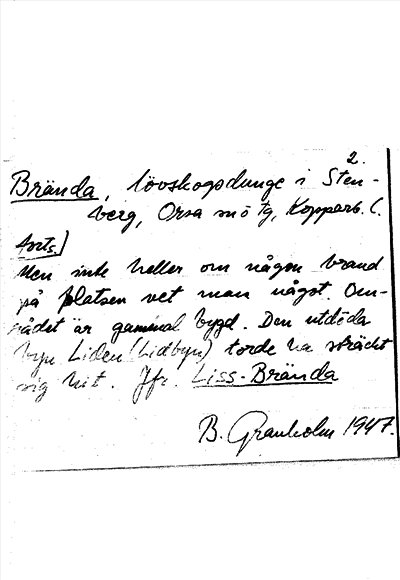 2.
Brända, lövskogsdunge i Sten-
berg, Orsa snö tg, Kopparb. l.
forts.)
Men inte heller om någon brand
på platsen vet man något. Om-
rådet är gammal bygd. Den utdöda
byn Liden (Lidbyn) torde ha sträckt
sig hit. Jfr. Liss-Brända
B. Granholm 1947.